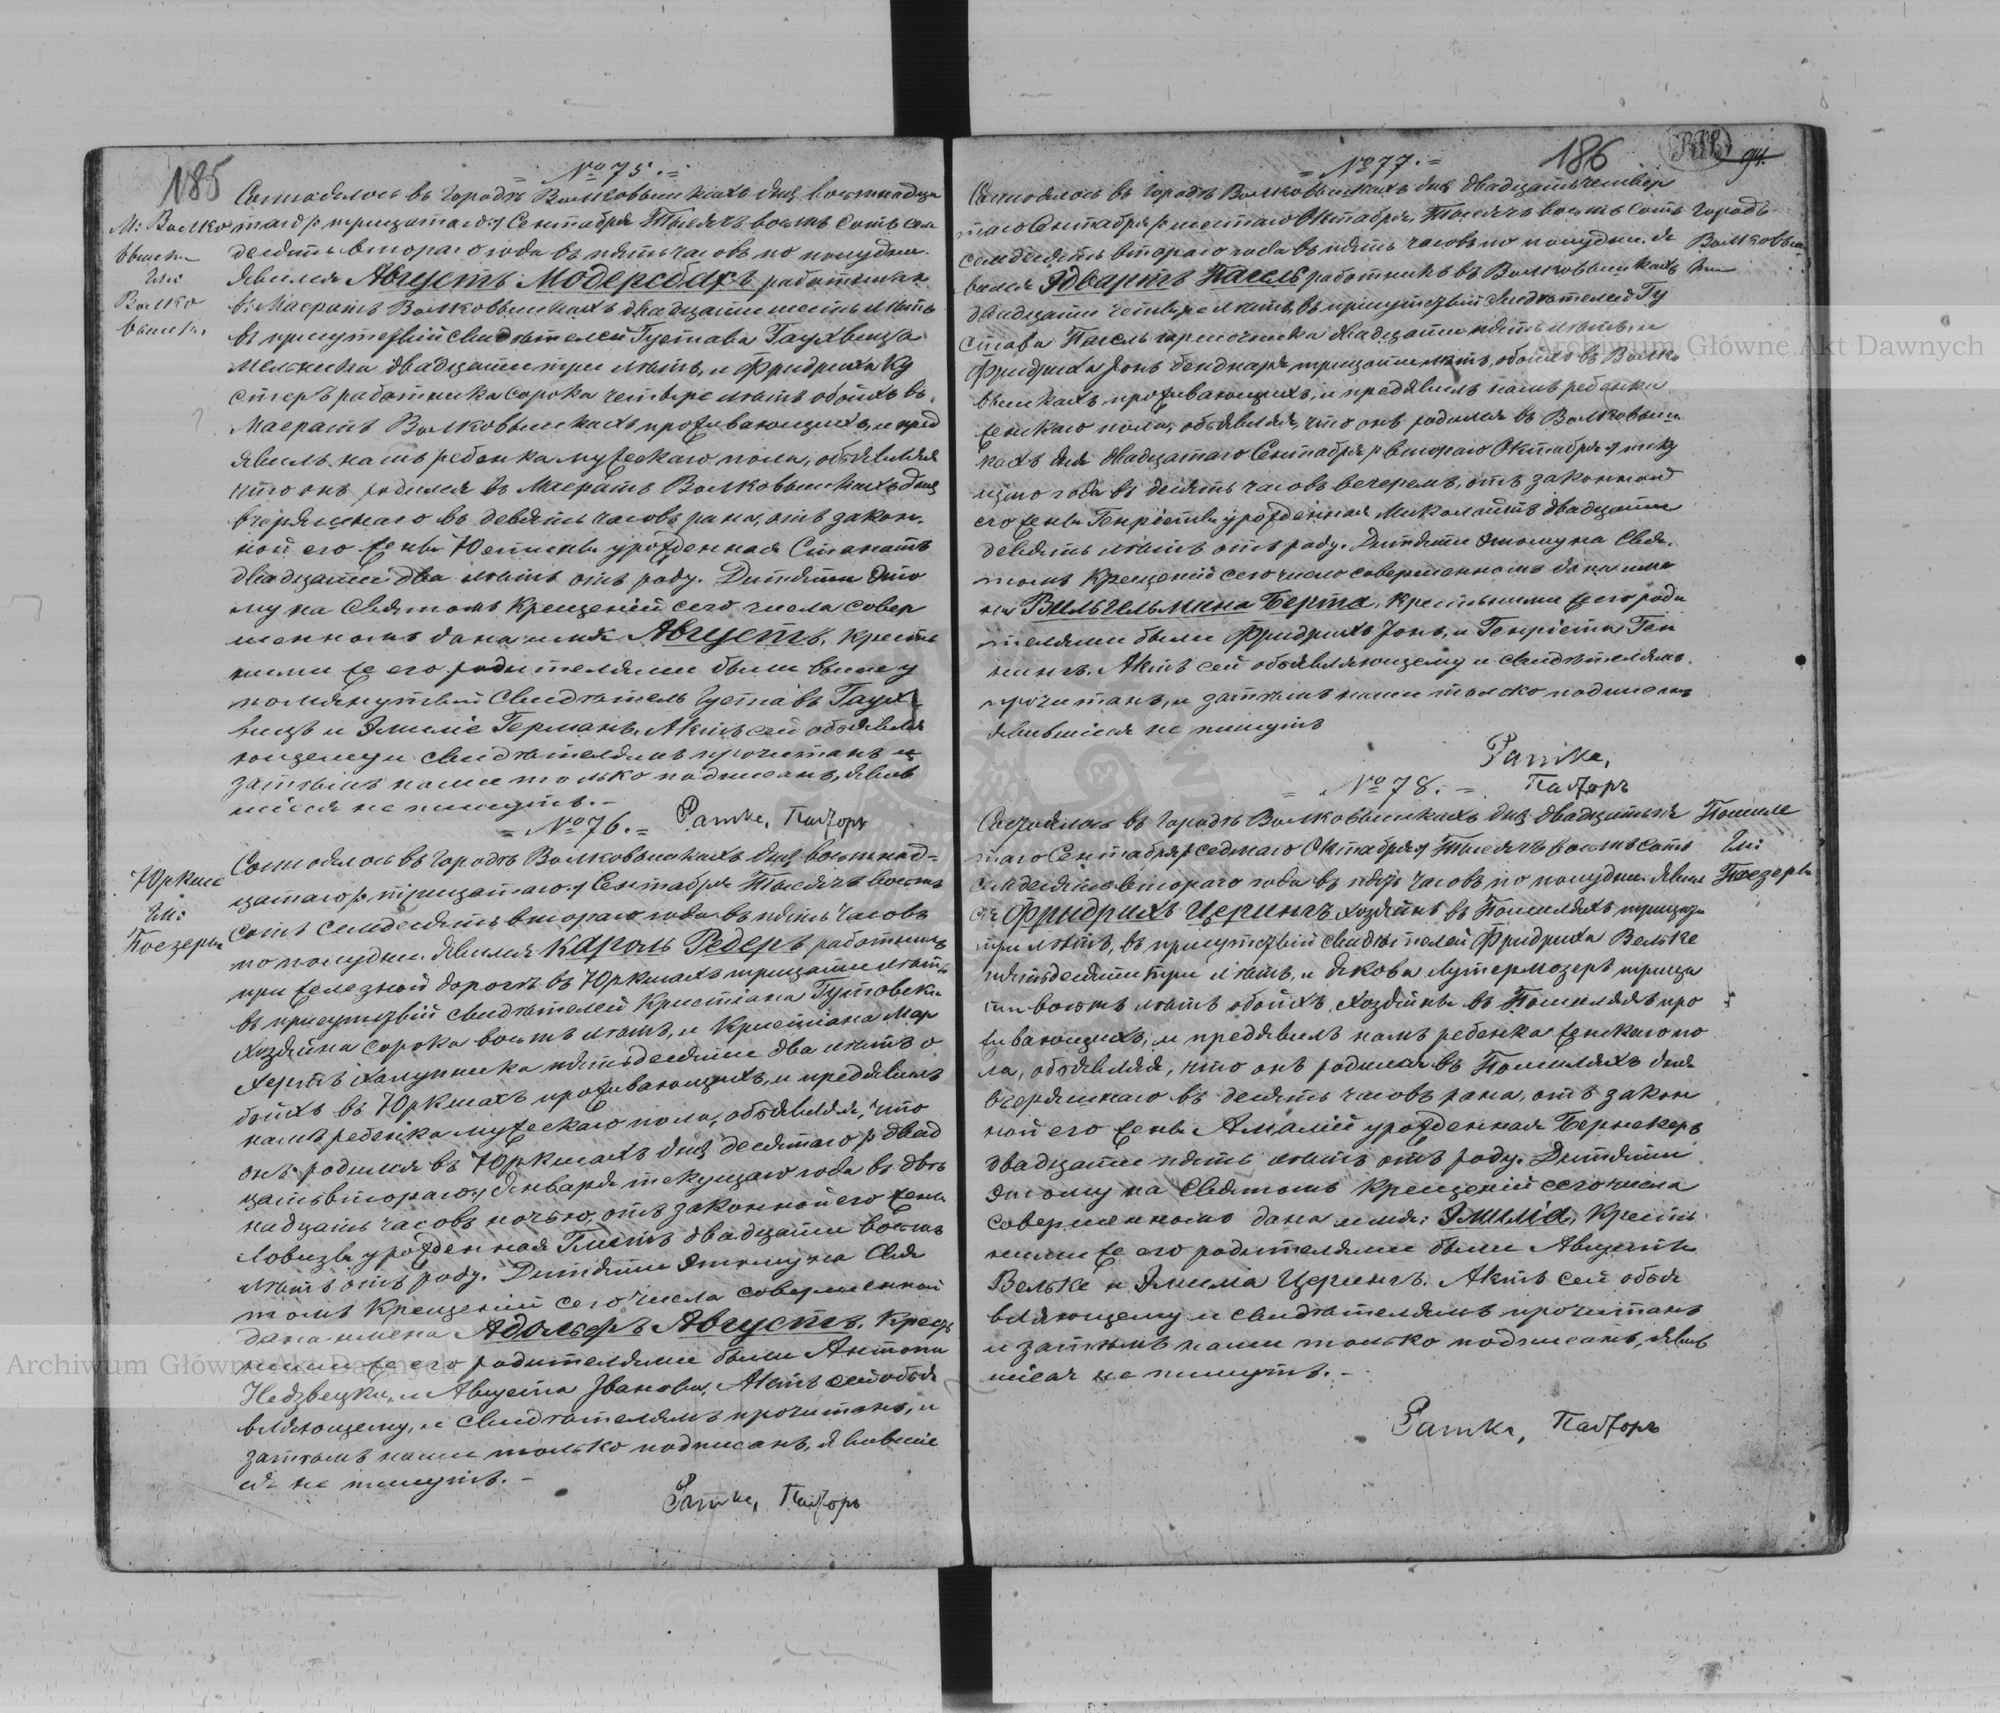 185
№ 75.
М: Волко
вышки
Гм:
Волко
вышки
Состоялось въ городѣ Волковышкахъ дня восемнадца
таго /: тридцатаго :/ Сентября Тысяча восемь сотъ сем
десятъ втораго года въ пять часовъ по полудни.
Явился Августъ Модерсбахъ работникъ
въ Маератѣ Волковышкахъ двадцати шесть лѣтъ
въ присутствіи свидѣтелей Густава Гаухвица
мельника двадцати три лѣтъ, и Фридриха Ку
стеръ работника сорока четыре лѣтъ обоихъ въ
Маератѣ Волковышкахъ проживающихъ, и пред
явилъ намъ ребенка мужескаго пола, объявляя
что онъ родился въ Маератѣ Волковышкахъ дня
вчеряшнаго въ девять часовъ рана, отъ закон
ной его жены Юстины урожденная Станатъ
двадцати два лѣтъ отъ роду. Дитяти это
му на Святомъ Крещеніи сего числа совер
шенномъ дана имя Августъ, крест
ными же его родителями были выше у
помянутый свидѣтель Густавъ Гаух
вицъ и Эмилiе Германъ. Актъ сей объявля
ющему и свидѣтелямъ прочитанъ и
затѣмъ нами только подписанъ, явив
шіеся не пишутъ. -
Ратке, Пасторъ
№ 76.
Юркше
Гм:
Поезеры
Состоялось въ городѣ Волковышкахъ дня восемнад=
цатаго /: тридцатаго :/ Сентября Тысяча восемь
сотъ семдесятъ втораго года въ пять часовъ
по полудни. Явился Кароль Редеръ работникъ
при железной дорогѣ въ Юркшахъ тридцати лѣтъ
въ присутствіи свидѣтелей Кристіана Гутовски
хозяина сорока восемь лѣтъ, и Кристіана Мар
хертъ халупника пятьдесяти два лѣтъ о
боихъ въ Юркшахъ проживающихъ, и предявилъ
намъ ребенка мужескаго пола, объявляя, что
онъ родился въ Юркшахъ дня десятаго /: двад
цать втораго :/ Января текущаго года въ двѣ
надцать часовъ ночью, отъ законной его жены
Ловизы урожденная Глистъ двадцати восемь
лѣтъ отъ роду. Дитяти этому на Свя
томъ Крещеніи сего числа совершенной
дана имена Адольфъ Августъ. Крест
ными же его родителями были Антони
Недзвецки, и Августа Иванова. Актъ сей объя
вляющему, и свидѣтелямъ прочитанъ, и
затѣмъ нами только подписанъ, явившіе
ся не пишутъ. -
Ратке, Пасторъ
186
94.
№ 77.
Городъ
Волковыш
ки
Состоялось въ городѣ Волковышкахъ дня двадцать четвер
таго Сентября /: шестаго Октября, Тысяча восемь сотъ
семдесятъ втораго года въ пять часовъ по полудни. Я
вился Эдвартъ Пагель работникъ въ Волковышкахъ
двадцати четыре лѣтъ, въ присутствіи свидѣтелей Гу
става Пагель горшочника двадцати пять лѣтъ, и
Фридриха Іонъ бенднаря тридцати лѣтъ, обоихъ въ Волко
вышкахъ проживающихъ, и предявилъ намъ ребенка
женскаго пола, объявляя, что онъ родился въ Волковыш
кахъ дня двадцатаго Сентября /: втораго Октября :/ теку
щаго года въ десять часовъ вечеромъ, отъ законной
его жены Генріеты урожденная Миколайтъ двадцати
девять лѣтъ отъ роду. Дитяти этому на Свя
томъ Крещеніи сего числа совершенномъ дана име
на Вильгельмина Берта, крестными же его роди
телями были Фридрихъ Іонъ, и Генріета Ген
нигъ. Актъ сей объявляющему и свидѣтелямъ
прочитанъ, и затѣмъ нами только подписанъ
явившіеся не пишутъ
Ратке,
Пасторъ
№ 78.
Пошиле
Гм:
Поезеры
Состоялось въ городѣ Волковышкахъ дня двадцать пя
таго Сентября /: седмаго Октября :/ Тысяча восемь сотъ
семдесятъ втораго года въ пять часовъ по полудни. Явил
ся Фридрихъ Церингъ хозяинъ въ Пошиляхъ тридцати
три лѣтъ, въ присутствіи свидѣтелей Фридриха Вельке
пятьдесяти три лѣтъ, и Якова Лутермозеръ тридца
ти восемь лѣтъ обоихъ хозяины въ Пошиляхъ про
живающихъ, и предявилъ намъ ребенка женскаго по
ла, объявляя, что онъ родился въ Пошиляхъ дня
вчеряшнаго въ десять часовъ рана, отъ закон
ной его жены Амаліи урожденная Бернекеръ
двадцати пять лѣтъ отъ роду. Дитяти
этому на Святомъ Крещеніи сего числа
совершенномъ дана имя: Эмилія, Крест
ными же его родителями были Августъ
Вельке и Эмилія Церингъ. Актъ сей объя
вляющему и свидѣтелямъ прочитанъ
и затѣмъ нами только подписанъ, явив
шіеся не пишутъ. -
Ратке, Пасторъ
Archiwum Główne Akt Dawnych
Archiwum Główne Akt Dawnych